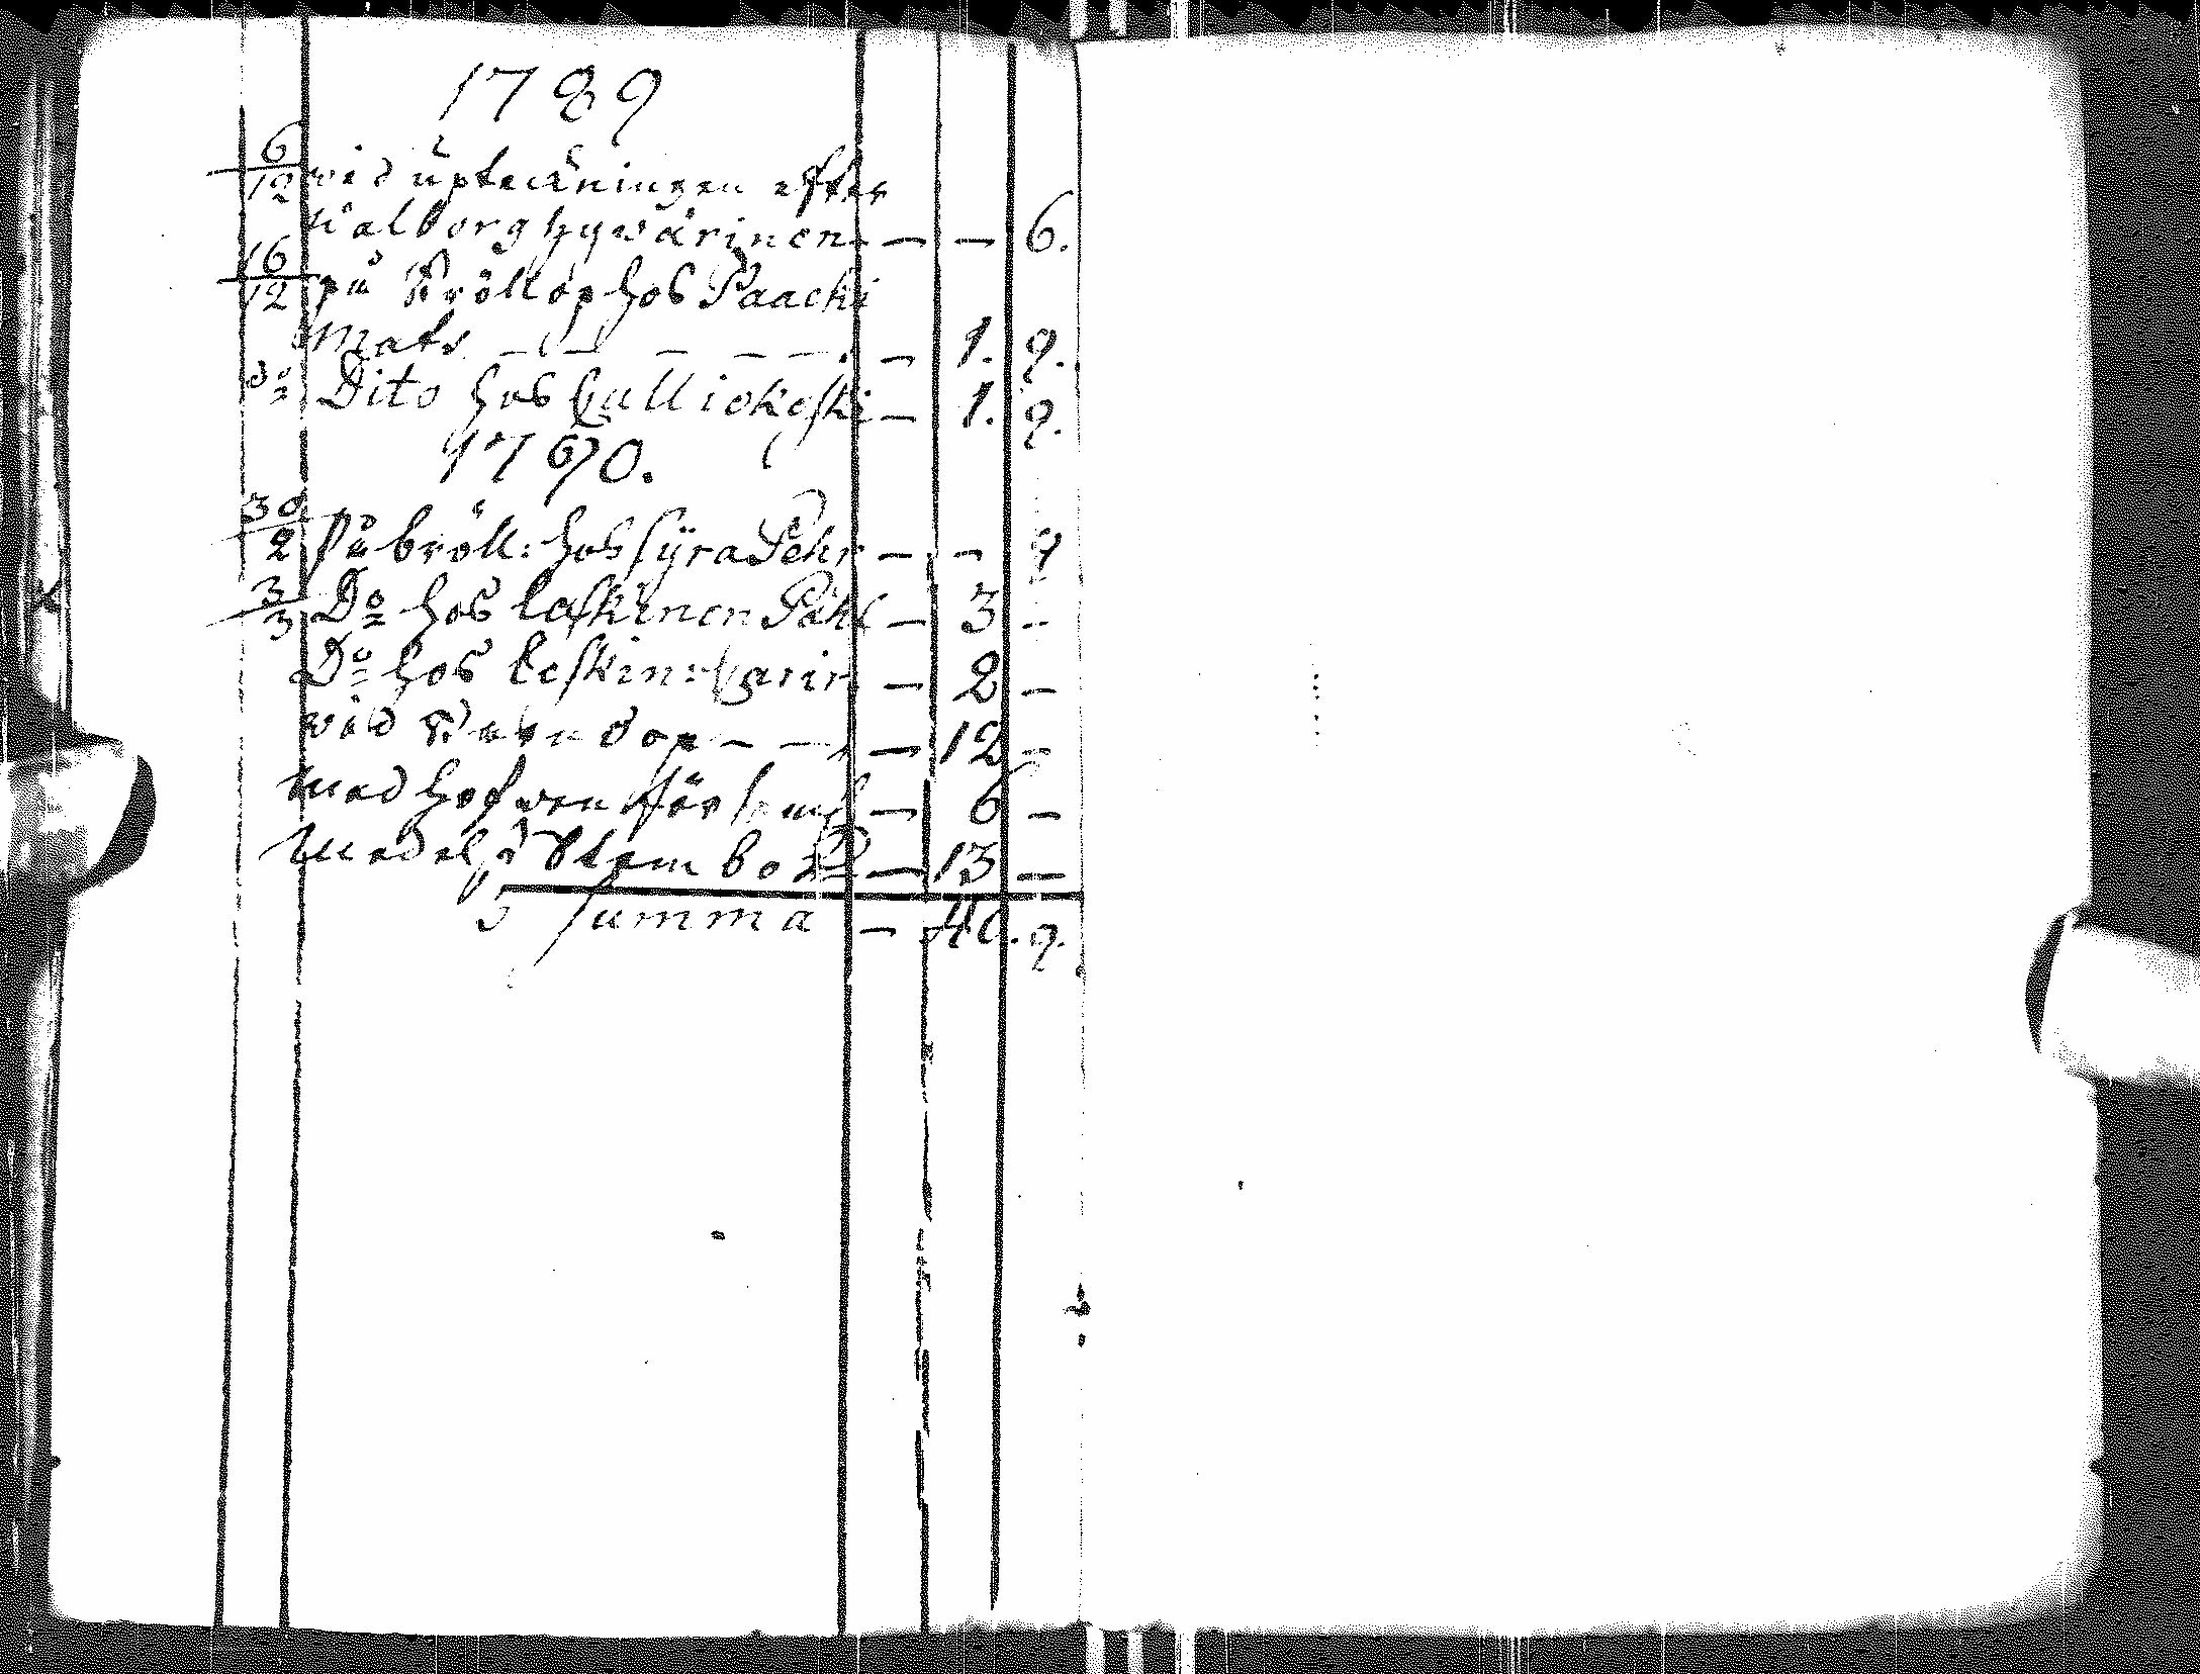 1789
6/12 vid upteckningen efter
Walborg Hyvärinen — — 6.
16/12 på Bröllop hos Paacki
Mats — — — — — — 1. 9.
do Dito hos Kulliokoski — 1. 9.
1790.
30/2 På bröll: hos Syra Pehr — — 9
3/3 Do hos Laskinen Påhl — 3 –
Do hos Leskin: Karin — 2 –
vid — — — 12 –
med Hofven för — 6 –
Medel — 13 —
Summa — 40. 9.